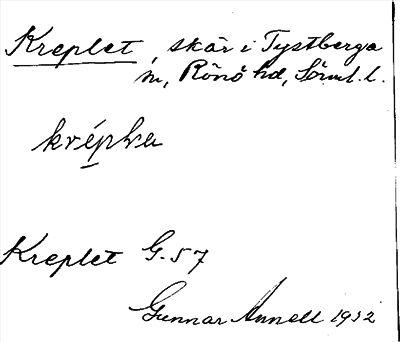 Kreplet, skär i Tystberga
sn, Rönö hd, Sörml. l.
kréplæ
Kreplet G. 57
Gunnar Annell 1932